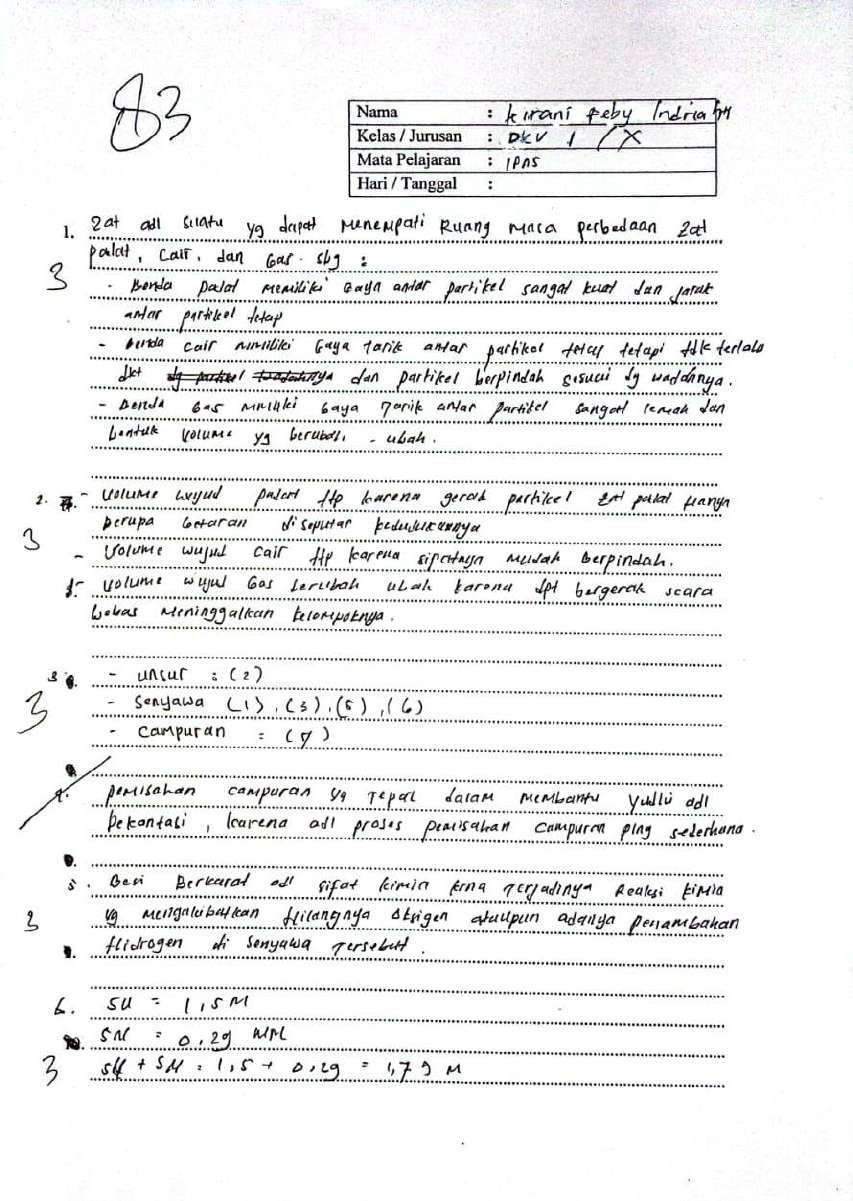 83
Nama : Kirani Feby Indria
Kelas / Jurusan : DKV 1 / X
Mata Pelajaran : IPAS
Hari / Tanggal :
1. Zat adl suatu yg dapat menempati Ruang masa perbedaan zat
padat, Cair, dan Gas. sbg :
3
- Benda padat memiliki Gaya antar partikel sangat kuat dan jarak
antar partikel tetap
- Benda cair memiliki Gaya tarik antar partikel tetapi tdk terlalu
dkt dan partikel berpindah sesuai dg wadahnya.
- Benda Gas memiliki Gaya Tarik antar partikel sangat lemah dan
bentuk volume yg berubah - ubah.
2. - Volume wujud padat ttp karena gerak partikel zat padat Hanya
berupa Getaran di seputar kedudukannya
3
- Volume wujud Cair ttp karena sifatnya mudah berpindah.
- Volume wujud Gas berubah ubah karena dpt bergerak secara
bebas meninggalkan kelompoknya.
3. - unsur : (2)
- Senyawa (1), (3), (5), (6)
3
- Campuran : (7)
4. pemisahan campuran yg Tepat dalam membantu Yullu adl
Dekantasi, karena adl proses pemisahan campuran pling sederhana.
5. Besi Berkarat adl sifat kimia krna Terjadinya Reaksi kimia
yg mengakibatkan Hilangnya Oksigen ataupun adanya penambahan
3
Hidrogen di Senyawa Tersebut.
6. SU = 1,5 M
SN = 0,29 MM
3
SU + SN = 1,5 + 0,29 = 1,79 M